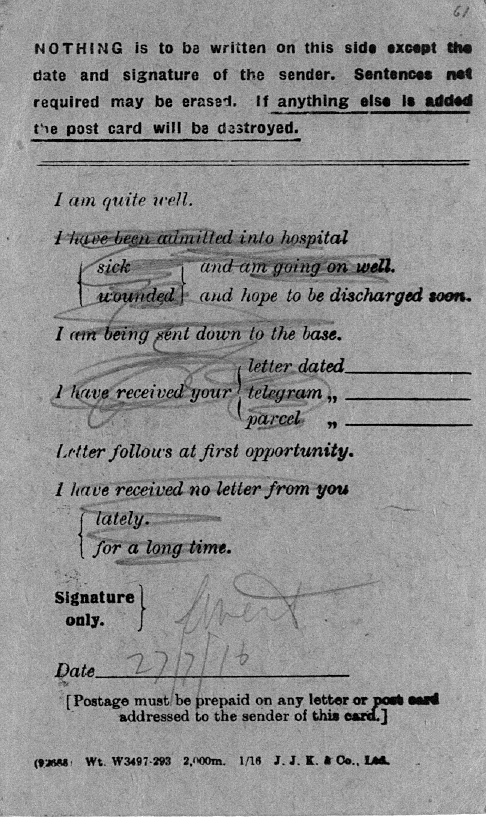 61
NOTHING is to be written on this side except the
date and signature of the sender. Sentences not
required may be erased. If anything else is added
the post card will be destroyed.
I am quite well.
I have been admitted into hospital
sick and am going on well.
wounded and hope to be discharged soon.
I am being sent down to the base.
letter dated
I have received your telegram „
parcel „
Letter follows at first opportunity.
I have received no letter from you
lately.
for a long time.
Signature
only.
Date 27/7/16
[Postage must be prepaid on any letter or post card
addressed to the sender of this card.]
(92688) Wt. W3497-293 2,000m. 1/16 J. J. K. & Co., Ltd.